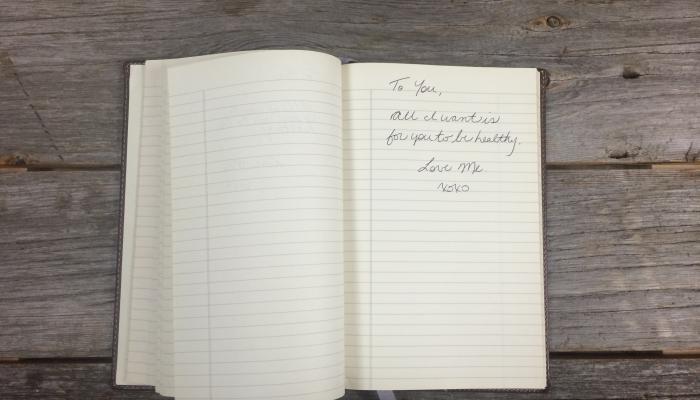 To You,
All I want is
for you to be healthy.
Love Me
xoxo